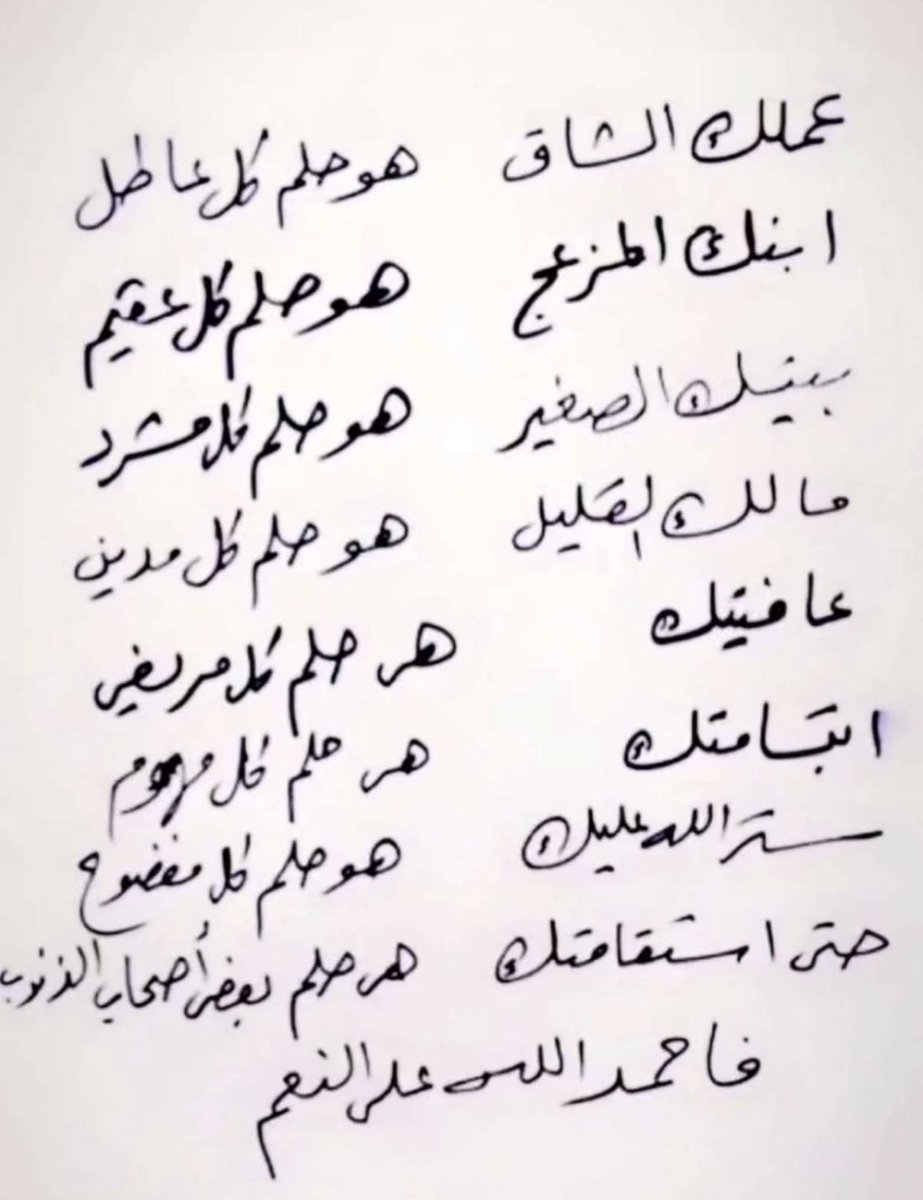 عملك الشاق هو حلم كل عاطل
ابنك المزعج هو حلم كل عقيم
بيتك الصغير هو حلم كل مشرد
مالك القليل هو حلم كل مدين
عافيتك هي حلم كل مريض
ابتسامتك هي حلم كل مهموم
ستر الله عليك هو حلم كل مفضوح
حتى استقامتك هي حلم بعض أصحاب الذنوب
فاحمد الله على النعم